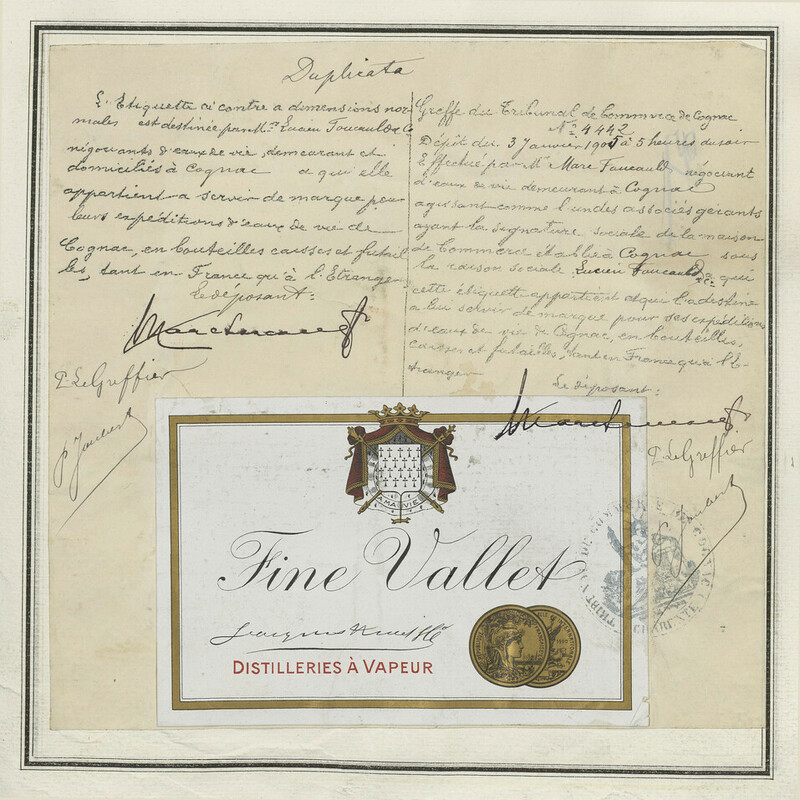 Duplicata
L'Etiquette ci contre a dimensions nor-
males est destinée par Mrs Lucien Foucauld & Co
négociants d'eaux de vie, demeurant et
domiciliés à Cognac à qui elle
appartient a servir de marque pour
leurs expéditions d'eaux de vie de
Cognac, en bouteilles caisses et futail-
les, tant en France qu'à l'Etranger
Le déposant:
P. Le Greffier
P. Joubert
Greffe du Tribunal de Commerce de Cognac
No 4442
Dépôt du 3 Janvier 1905 à 5 heures du soir
Effectué par Mr Marc Foucauld négociant
d'eaux de vie demeurant à Cognac
agissant comme l'un des associés gérants
ayant la signature sociale de la maison
de Commerce établie à Cognac sous
la raison sociale Lucien Foucauld & Co à qui
cette étiquette appartient et qui la destine
à lui servir de marque pour ses expéditions
d'eaux de vie de Cognac, en bouteilles,
caisses et futailles, tant en France qu'à l'É-
tranger
Le déposant:
P. Le Greffier
Joubert
A MA VIE
Fine Vallet
DISTILLERIES À VAPEUR
TRIBUNAL DE COMMERCE DE COGNAC
CHARENTE